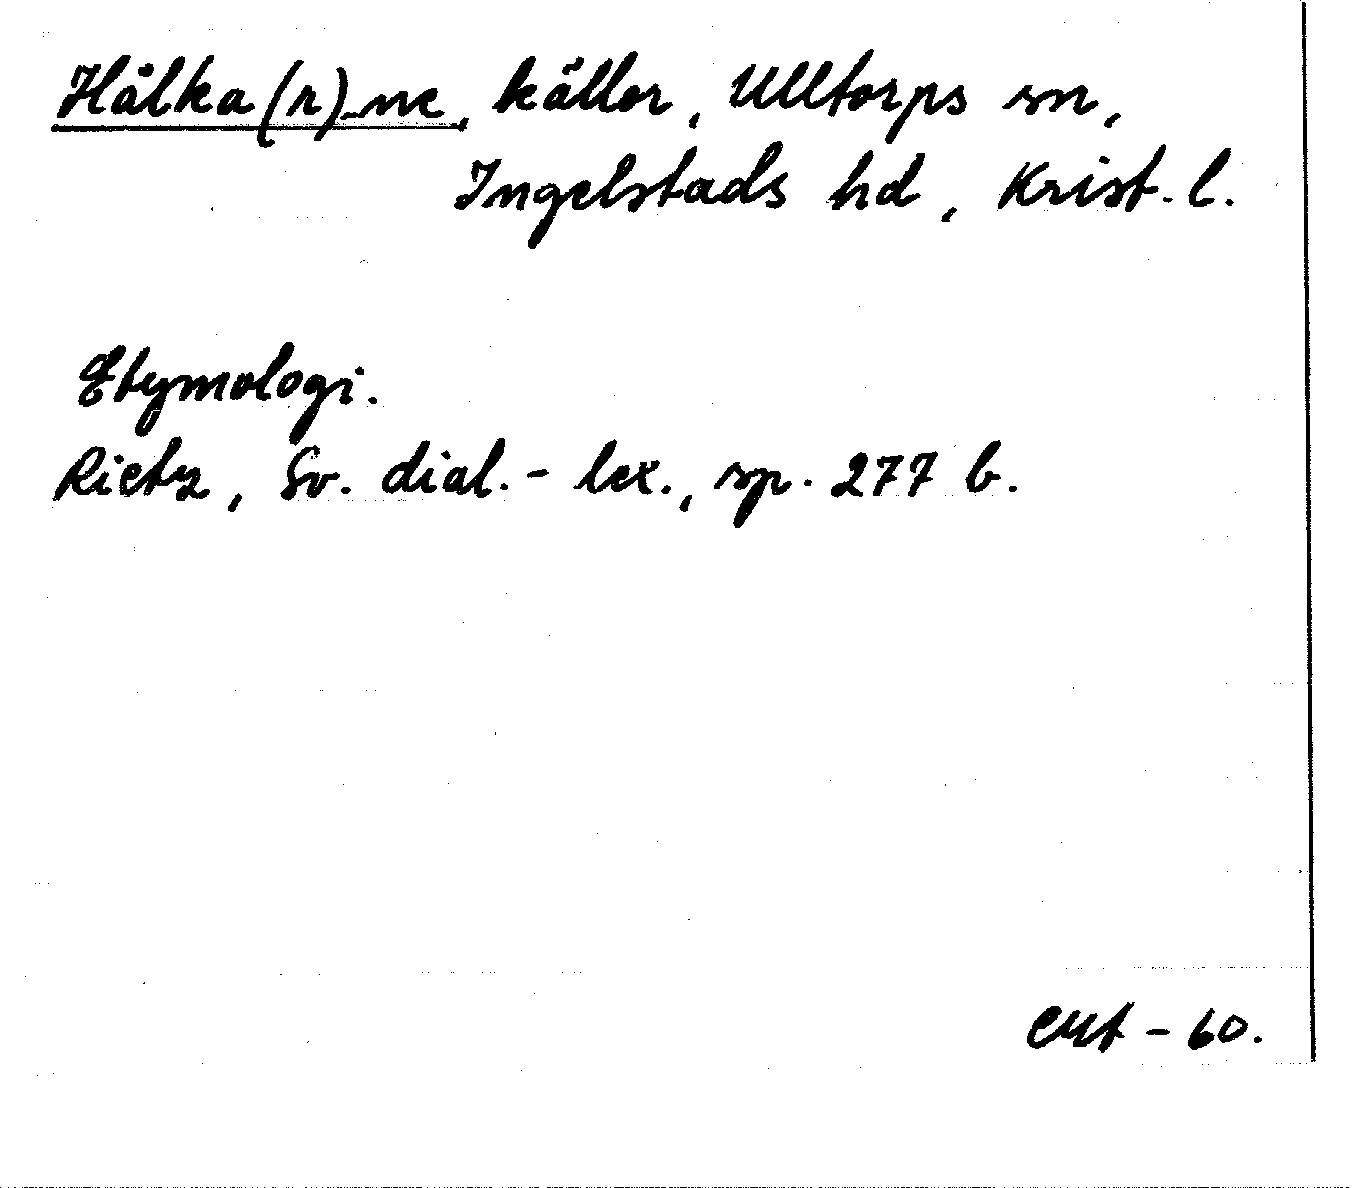 Hålka(r)ne, källor, Ulltorps sn,
Ingelstads hd, Krist. l.
Etymologi.
Rietz, Sv. dial.-lex., sp. 277 b.
-60.